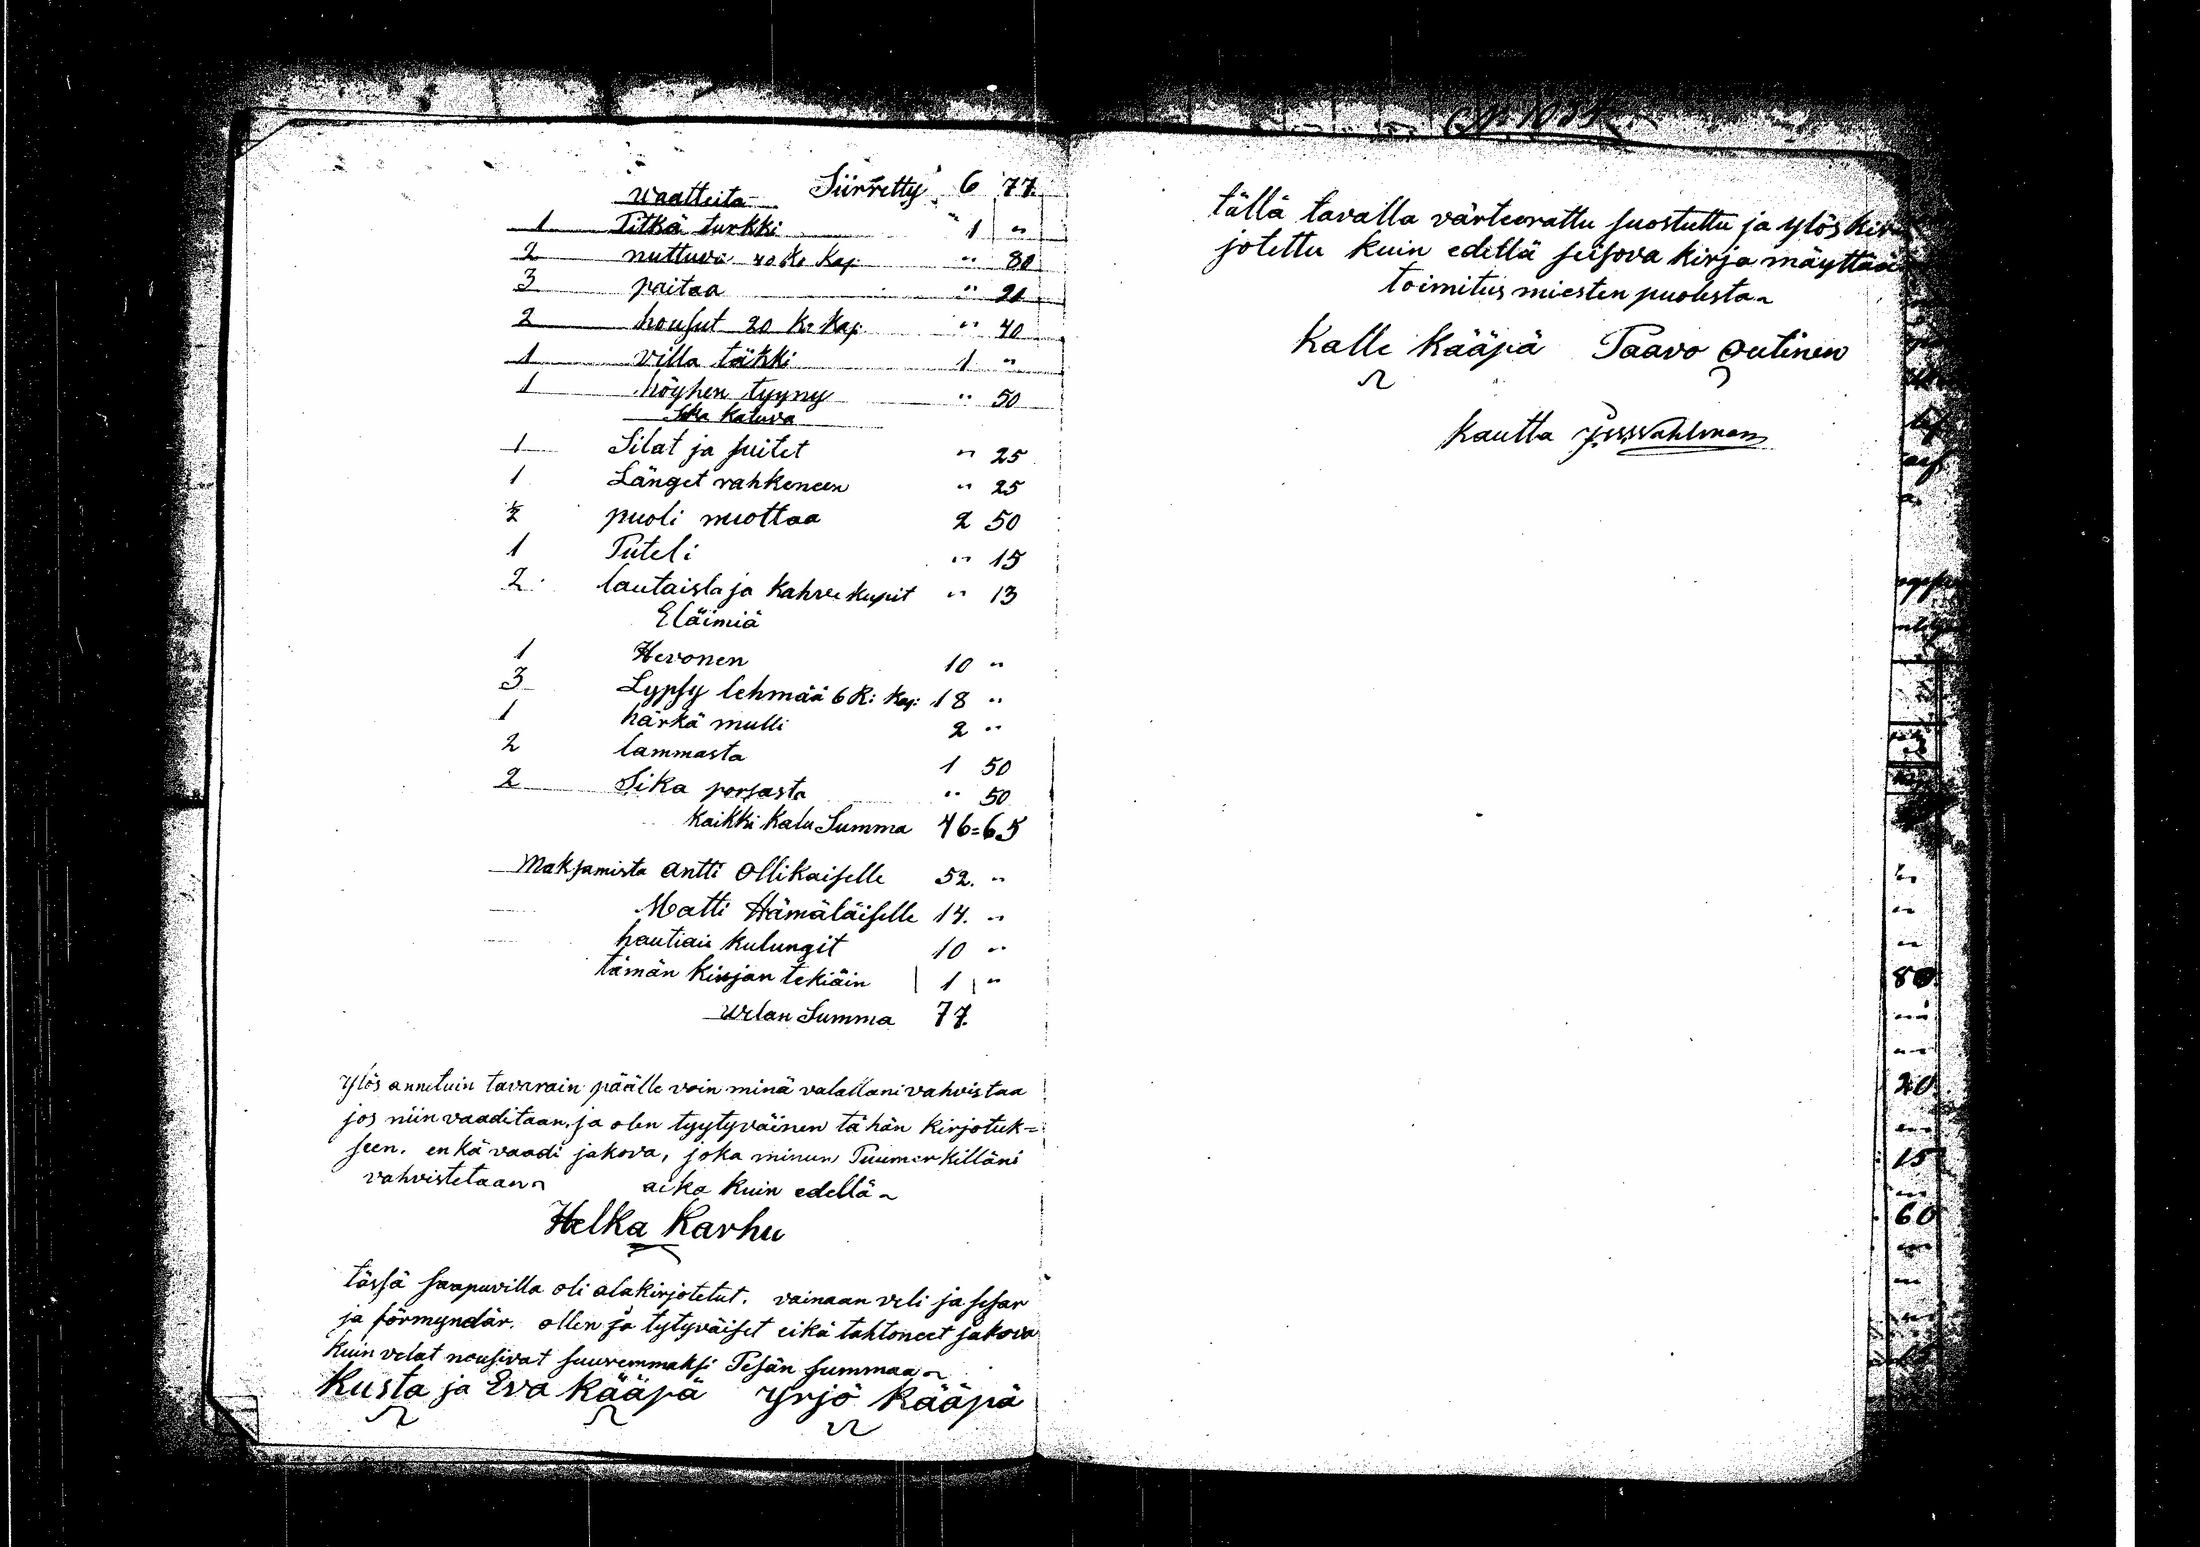 Siirretty 6 77.
waatteita
1 Pitkä turkki " 1 "
2 nuttuva 40 K: Kap: " 80
3 paitaa " 21
2 housut 20 K: Kap: " 40
1 villa täkki 1 "
1 höyhen tyyny " 50
Seka Kaluva
1 Silat ja suitet " 25
1 Länget rahkeneen " 25
½ puoli nuottaa 2 50
1 Puteli " 15
2 lautaista ja Kahvekupit " 13
Eläimiä
1 Hevonen 10 "
3 Lypsy lehmää 6 R: Kap: 18 "
1 härkä mulli 2 "
2 lammasta 1 50
2 Sika porsasta " 50
Kaikki Kalu Summa 46=65
Maksamista Antti Ollikaiselle 52. "
Matti Hämäläiselle 14. "
hautiais kulungit 10 "
tämän kirjan tekiäin 1 "
Welan Summa 77.
Ylös annetuin tavarain päälle voin minä valallani vahvistaa
jos niin vaaditaan, ja olen tyytyväinen tähän Kirjotuk=
seen. enkä vaadi jakova, joka minun Puumerkilläni
vahvistetaan aika kuin edellä
Helka Karhu
tässä saapuvilla oli alakirjotetut. vainaan veli ja sisar
ja förmyndär. ollen ja tytyväiset eikä tahtoneet jakova
Kuin velat nousivat suuremmaksi Pesän summaa
Kusta ja Eva Kääpä Yrjö Kääpä
tällä tavalla värteerattu suostuttu ja ylös kir
jotettu kuin edellä seisova kirja näyttää
toimitus miesten puolesta
Kalle Kääpä Paavo Outinen
Kautta
80
20
15
60